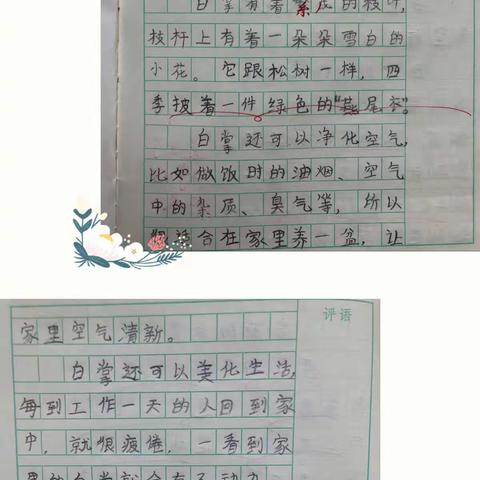 白掌有着繁茂的枝叶,
枝杆上有着一朵朵雪白的
小花。它跟松树一样,四
季披着一件绿色的“燕尾衣”。
白掌还可以净化空气,
比如做饭时的油烟、空气
中的杂质、臭气等,所以
很适合在家里养一盆,让
评语
家里空气清新。
白掌还可以美化生活,
每到工作一天的人回到家
中,就很疲倦,一看到家
里的白掌就会有了动力